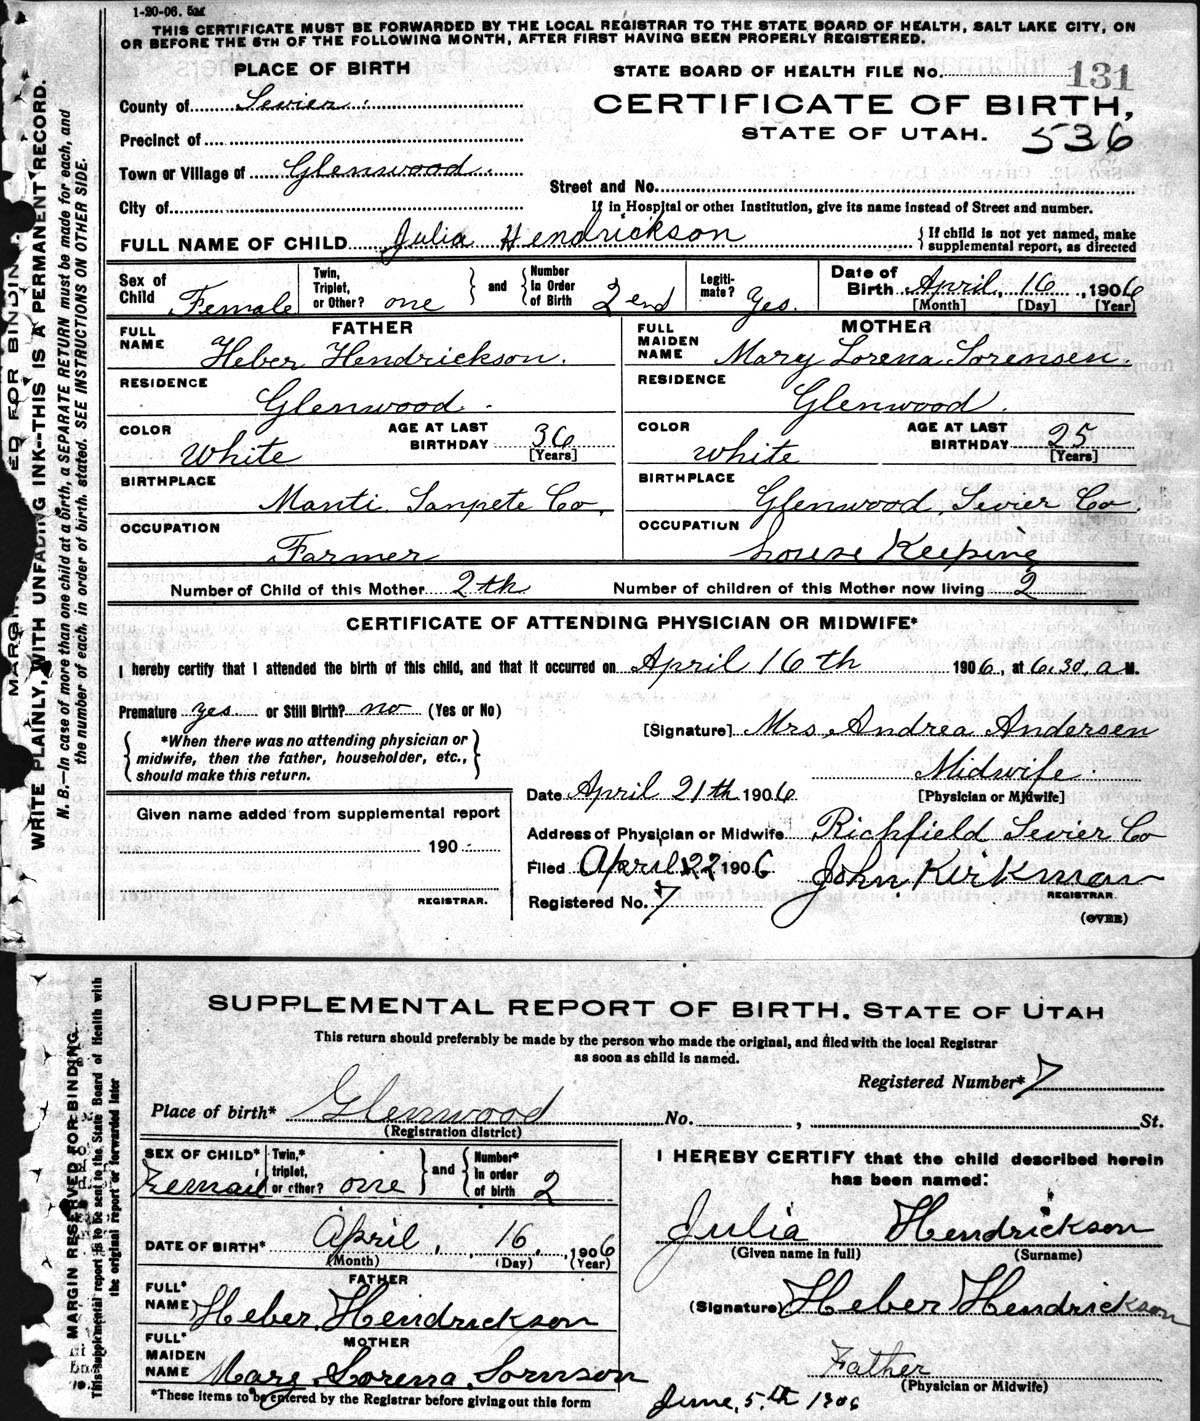 1-20-06. 5M
THIS CERTIFICATE MUST BE FORWARDED BY THE LOCAL REGISTRAR TO THE STATE BOARD OF HEALTH, SALT LAKE CITY, ON
OR BEFORE THE 5TH OF THE FOLLOWING MONTH, AFTER FIRST HAVING BEEN PROPERLY REGISTERED.
PLACE OF BIRTH
STATE BOARD OF HEALTH FILE No. 131
County of Sevier
CERTIFICATE OF BIRTH,
Precinct of
STATE OF UTAH. 536
Town or Village of Glenwood
Street and No.
City of
If in Hospital or other Institution, give its name instead of Street and number.
FULL NAME OF CHILD Julia Hendrickson { If child is not yet named, make supplemental report, as directed
Sex of Child Female
Twin, Triplet, or Other? one } and { Number in Order of Birth 2end
Legitimate? Yes.
Date of Birth April, 16, 1906
[Month] [Day] [Year]
FATHER
FULL NAME Heber Hendrickson.
MOTHER
FULL MAIDEN NAME Mary Lorena Sorensen.
RESIDENCE Glenwood.
RESIDENCE Glenwood.
COLOR White AGE AT LAST BIRTHDAY 36 [Years]
COLOR White AGE AT LAST BIRTHDAY 25 [Years]
BIRTHPLACE Manti Sanpete Co,
BIRTHPLACE Glenwood, Sevier Co.
OCCUPATION Farmer
OCCUPATION house Keeping
Number of Child of this Mother 2th Number of children of this Mother now living 2
CERTIFICATE OF ATTENDING PHYSICIAN OR MIDWIFE*
I hereby certify that I attended the birth of this child, and that it occurred on April 16th 1906, at 6.30. a M.
Premature yes or Still Birth? no (Yes or No)
{ *When there was no attending physician or
midwife, then the father, householder, etc.,
should make this return. }
[Signature] Mrs Andrea Andersen
Midwife.
[Physician or Midwife]
Date April 21th 1906
Given name added from supplemental report
190
REGISTRAR.
Address of Physician or Midwife Richfield Sevier Co
Filed April 22 1906 John Kirkman
REGISTRAR.
Registered No. 7
(OVER)
WRITE PLAINLY, WITH UNFADING INK--THIS IS A PERMANENT RECORD.
N. B.—In case of more than one child at a birth, a SEPARATE RETURN must be made for each, and
the number of each, in order of birth stated. SEE INSTRUCTIONS ON OTHER SIDE.
SUPPLEMENTAL REPORT OF BIRTH, STATE OF UTAH
This return should preferably be made by the person who made the original, and filed with the local Registrar
as soon as child is named.
Registered Number* 7
Place of birth* Glenwood No. , St.
(Registration district)
SEX OF CHILD* Femail
Twin,* triplet, or other? one } and { Number* in order of birth 2
I HEREBY CERTIFY that the child described herein
has been named:
Julia Hendrickson
(Given name in full) (Surname)
DATE OF BIRTH* April, 16, 1906
(Month) (Day) (Year)
FATHER
FULL* NAME Heber Hendrickson
(Signature) Heber Hendrickson
MOTHER
FULL* MAIDEN NAME Mary Lorena Sornson
Father
(Physician or Midwife)
*These items to be entered by the Registrar before giving out this form
June, 5.th 1906
MARGIN RESERVED FOR BINDING.
This supplemental report is to be sent to the State Board of Health with
the original report or forwarded later